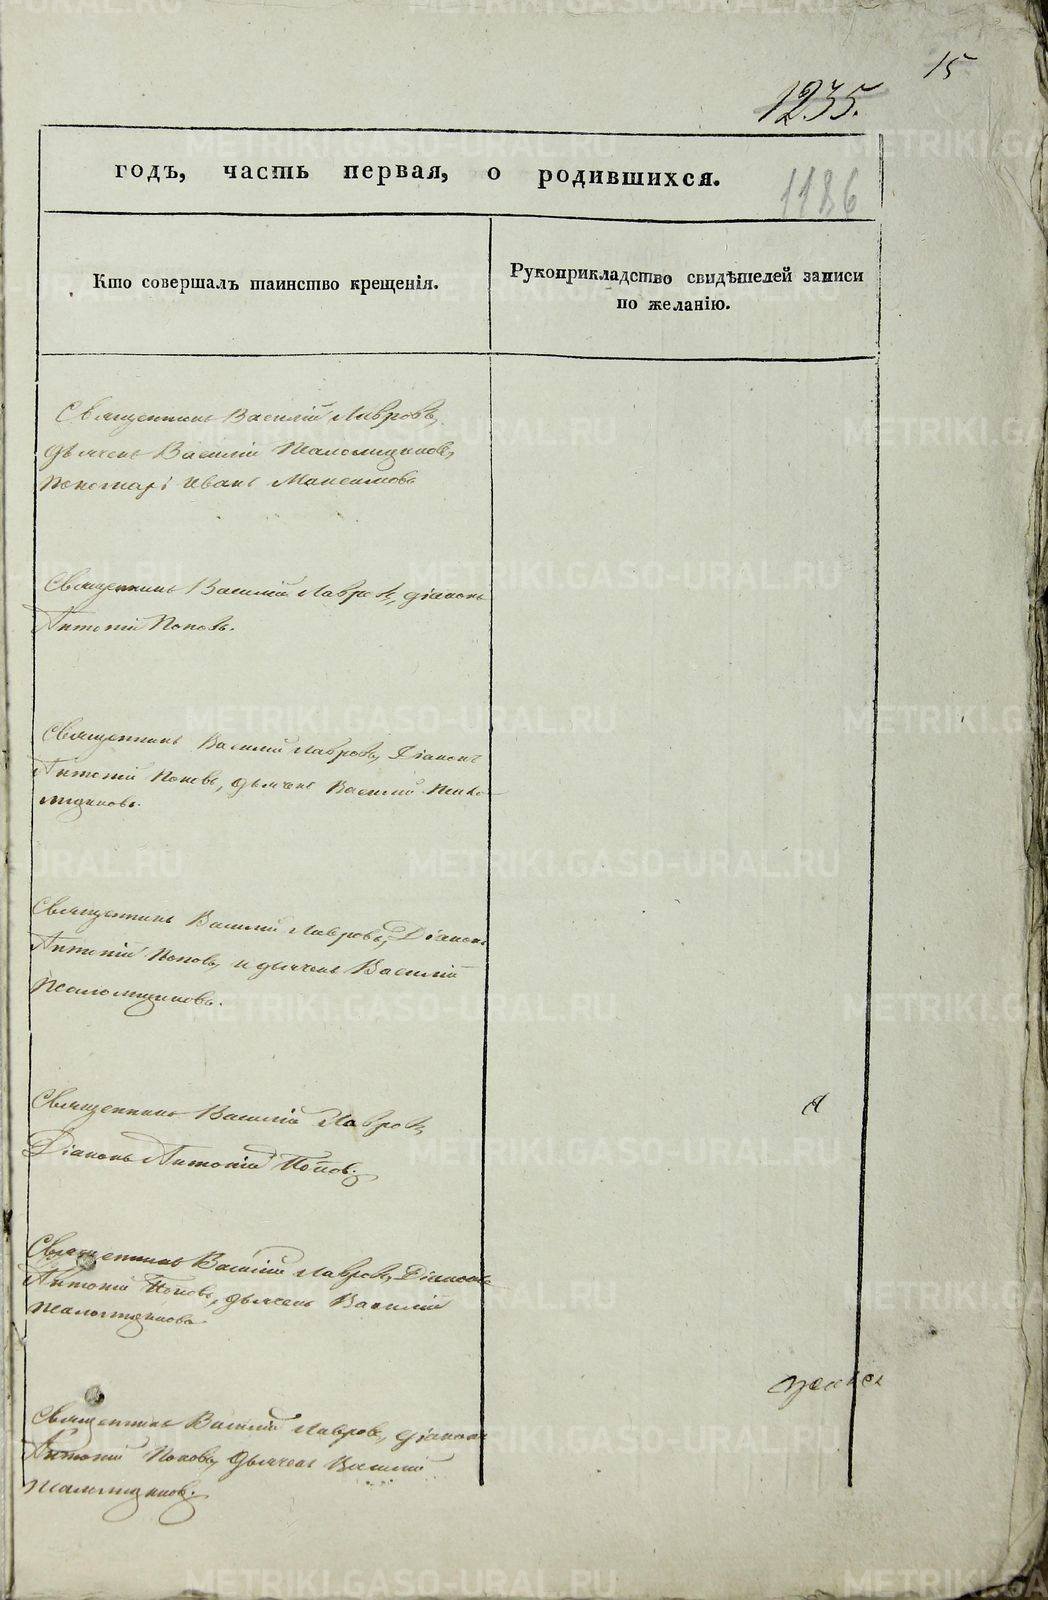 15
1235.
годъ, часть первая, о родившихся.
1186
Кто совершалъ таинство крещенія.
Рукоприкладство свидѣтелей записи
по желанію.
Священникъ Василій Лавровъ,
дьячекъ Василій
пономарь Иванъ Максимовъ
Священникъ Василій Лавровъ, діаконъ
Антоній Поповъ.
Священникъ Василій Лавровъ, Діаконъ
Антоній Поповъ, дьячекъ Василій
Священникъ Василій Лавровъ, Діаконъ
Антоній Поповъ, и дьячекъ Василій
Священникъ Василій Лавровъ,
Діаконъ Антоній Поповъ.
Священникъ Василій Лавровъ, Діаконъ
Антоній Поповъ, дьячекъ Василій
Священникъ Василій Лавровъ, діаконъ
Антоній Поповъ, дьячекъ Василій
METRIKI.GASO-URAL.RU